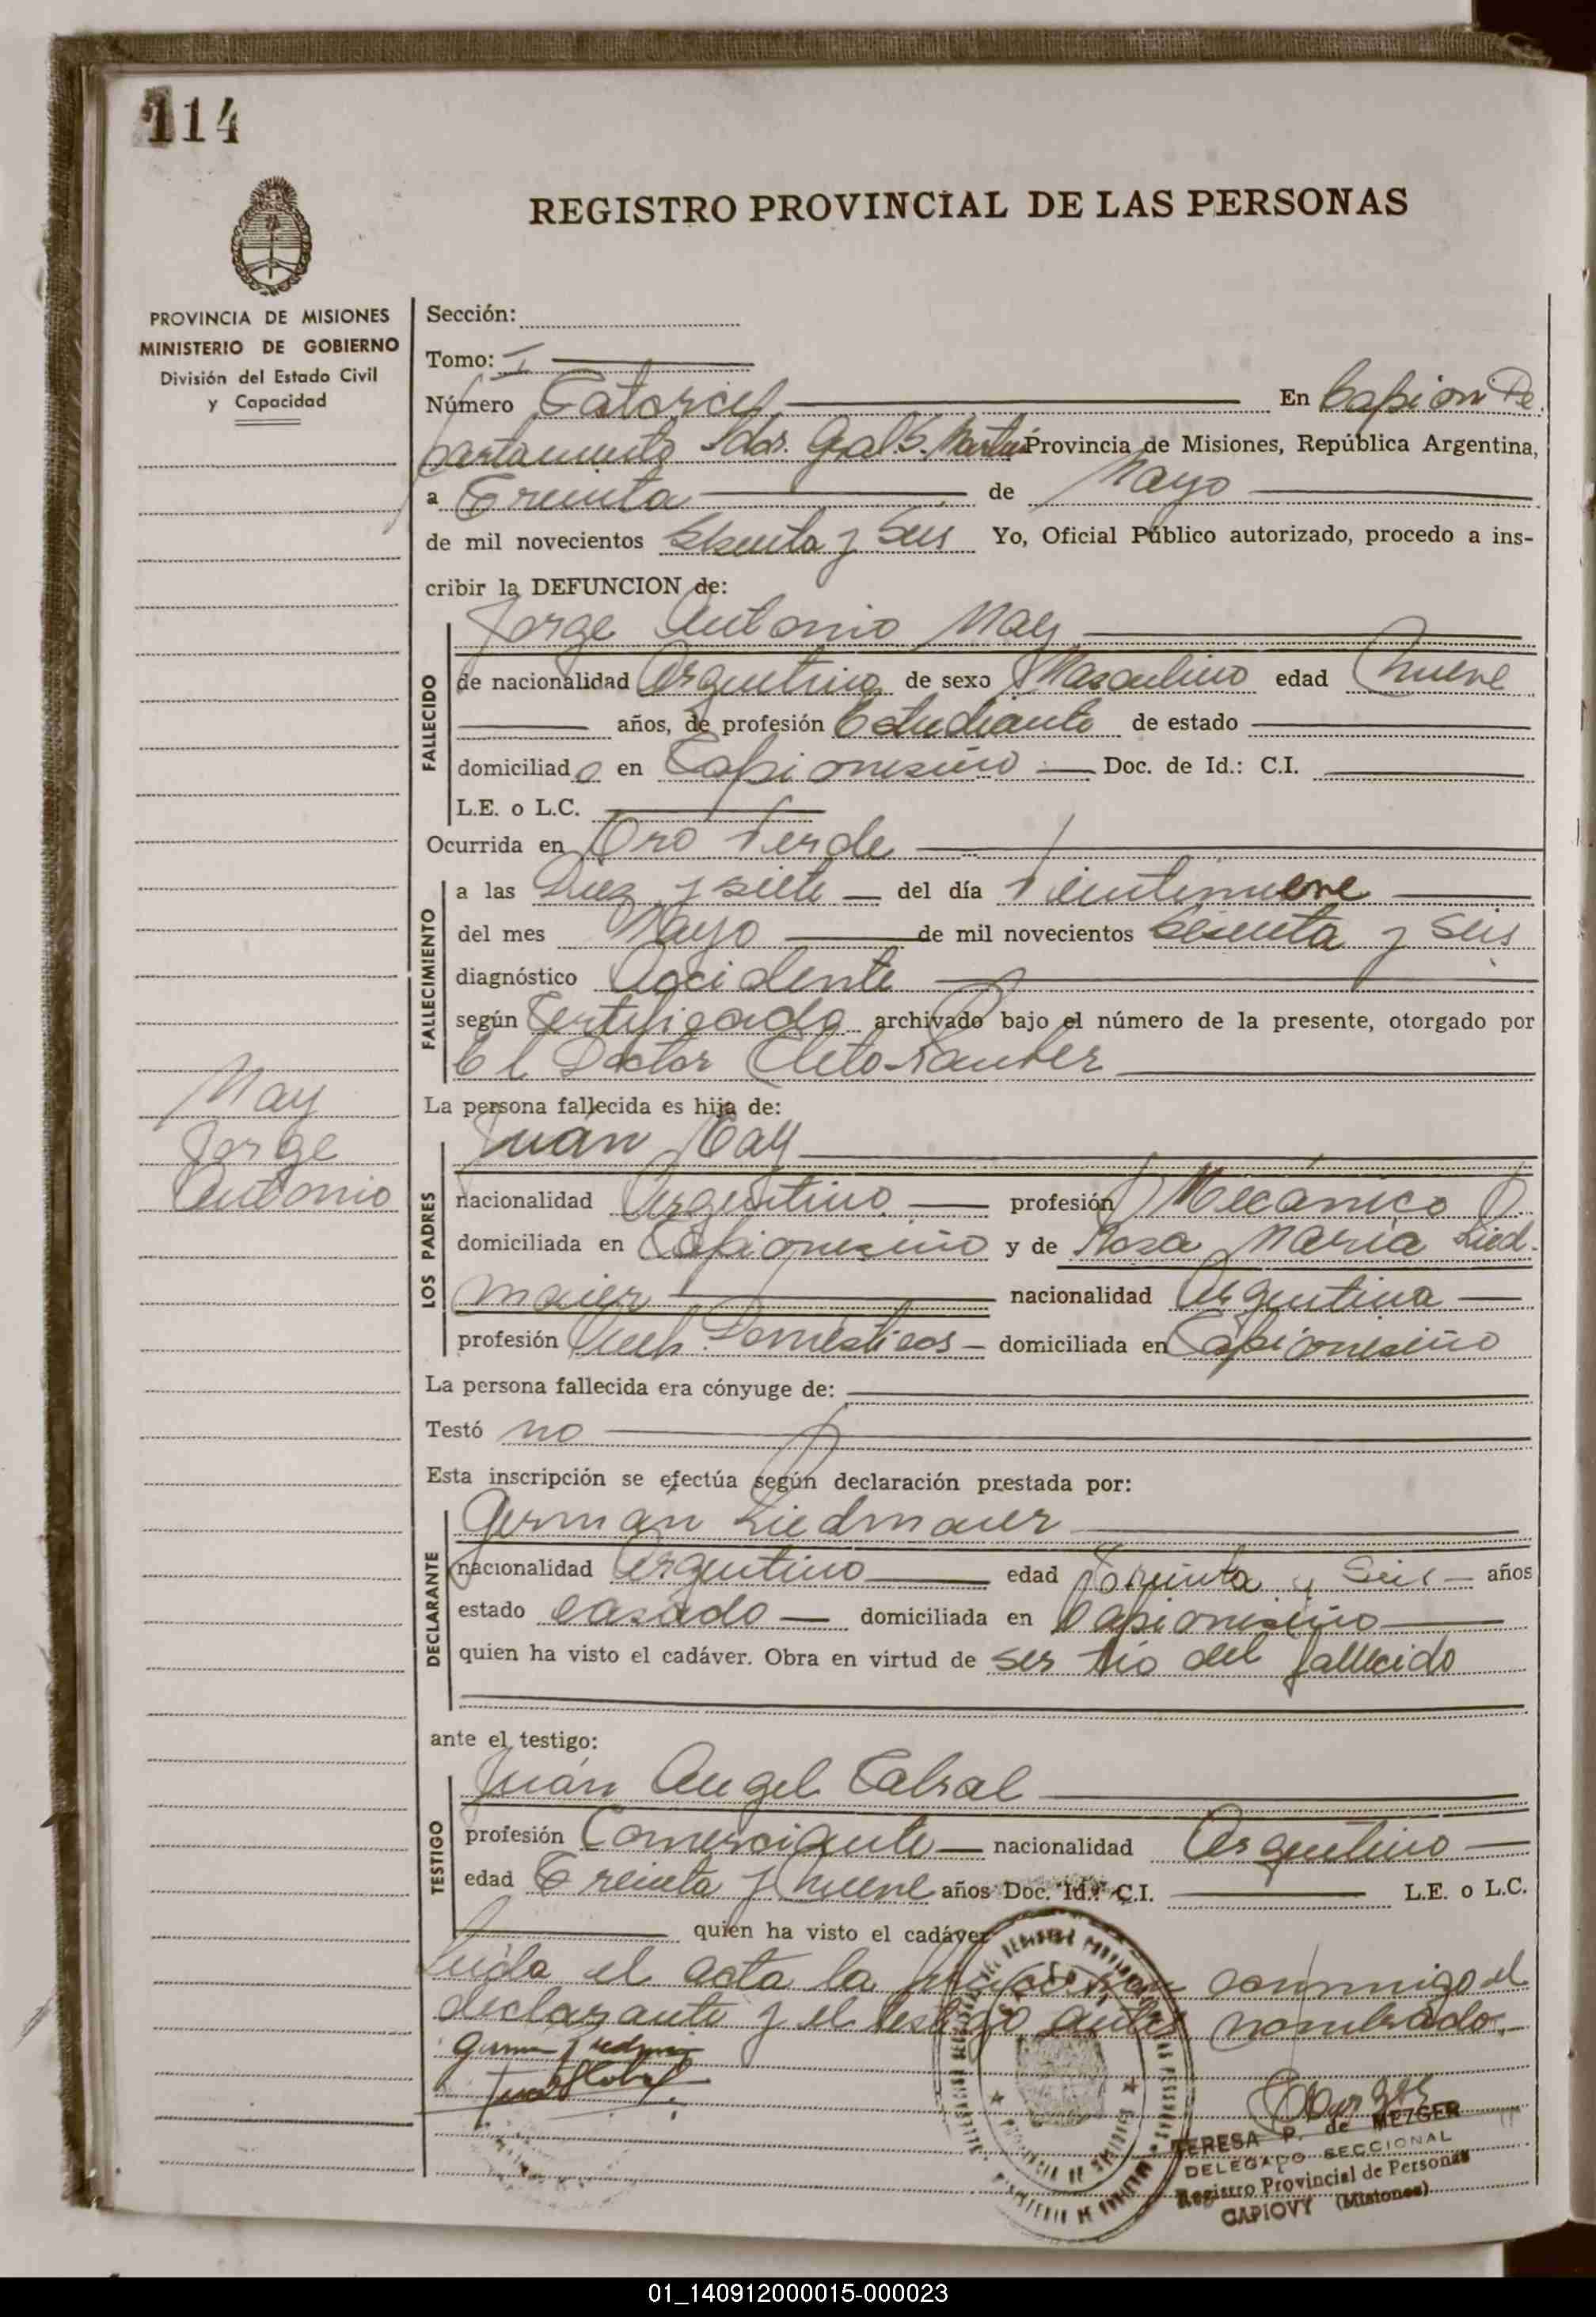 114
REGISTRO PROVINCIAL DE LAS PERSONAS
PROVINCIA DE MISIONES
MINISTERIO DE GOBIERNO
División del Estado Civil
y Capacidad
May
Jorge
Antonio
Sección:
Tomo: I
Número Catorce En Capiovi De
partamento Ldor. Gral. S. Martín Provincia de Misiones, República Argentina,
a Treinta de Mayo
de mil novecientos sesenta y seis Yo, Oficial Público autorizado, procedo a ins-
cribir la DEFUNCION de:
FALLECIDO
Jorge Antonio May
de nacionalidad Argentina de sexo Masculino edad Nueve
años, de profesión Estudiante de estado
domiciliado en Capiovisiño Doc. de Id.: C.I.
L.E. o L.C.
Ocurrida en Oro Verde
FALLECIMIENTO
a las Diez y siete del día Veintinueve
del mes Mayo de mil novecientos sesenta y seis
diagnóstico Accidente
según Certificado archivado bajo el número de la presente, otorgado por
El Doctor Cleto Rauber
La persona fallecida es hija de:
LOS PADRES
Juán May
nacionalidad Argentino profesión Mecánico
domiciliada en Capiovisiño y de Rosa María Lied-
maier nacionalidad Argentina
profesión Queh. Domésticos domiciliada en Capiovisiño
La persona fallecida era cónyuge de:
Testó no
Esta inscripción se efectúa según declaración prestada por:
DECLARANTE
Germán Liedmaier
nacionalidad Argentino edad Treinta y Seis años
estado casado domiciliada en Capiovisiño
quien ha visto el cadáver. Obra en virtud de ser tío del fallecido
ante el testigo:
TESTIGO
Juán Angel Cabral
profesión Comerciante nacionalidad Argentino
edad Treinta y Nueve años Doc. Id.: C.I. L.E. o L.C.
quien ha visto el cadáver
Leída el acta la conmigo el
declarante y el testigo antes nombrado.
TERESA P. de MEZGER
DELEGADO SECCIONAL
Registro Provincial de Personas
CAPIOVY (Misiones)
01_140912000015-000023